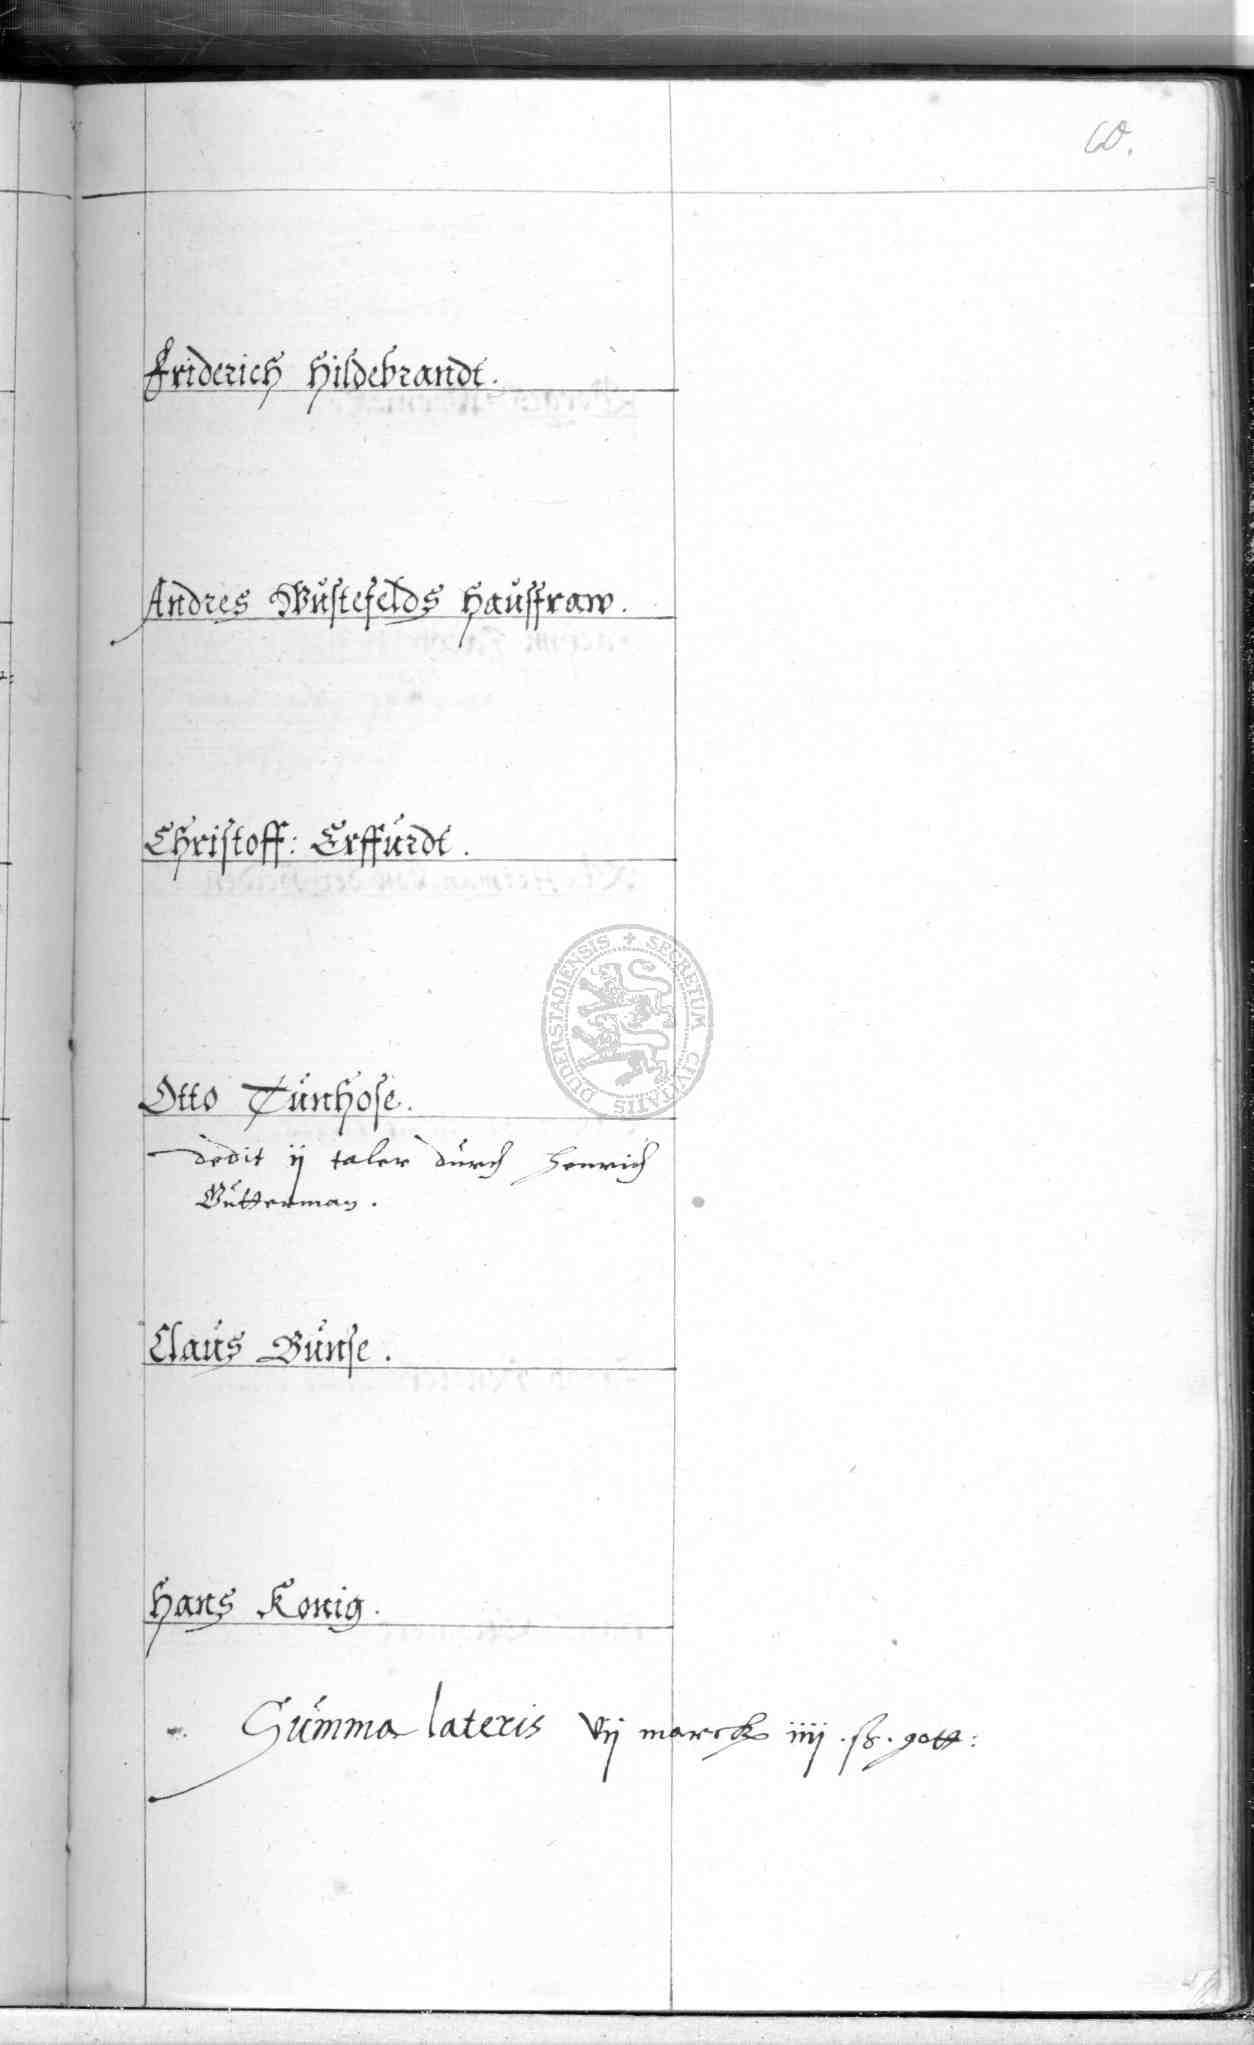 60.
Friderich Hildebrandt.
Andres Wustefelds haussfraw.
Christoff: Erffurdt.
Otto Tunhose.
dedit ij taler durch Henrich
Butterman.
Claus Bunse.
Hans Konig.
Summa lateris vij marck iiij . ß . gott:
SECRETUM CIVITATIS DUDERSTADIENSIS